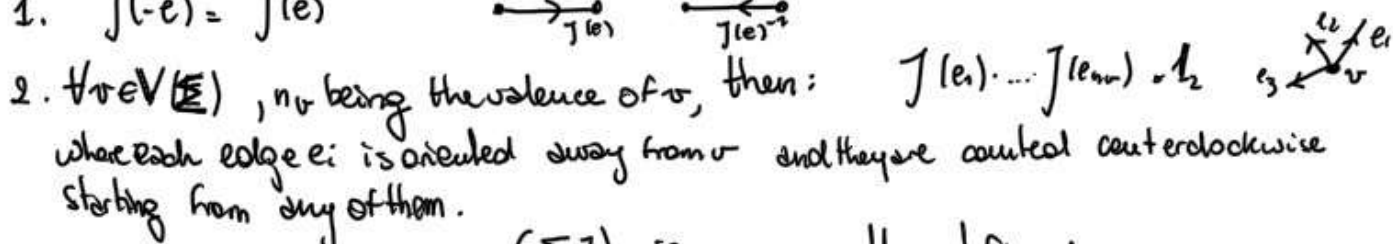 1. J(-e) = J(e) J(e) J(e)⁻¹
2. ∀v∈V(Σ), nᵥ being the valence of v, then: J(e₁)·...·J(eₙᵥ) = 1₂ e₃ e₂ e₁ v
where each edge ei is oriented away from v and they are counted counterclockwise
starting from any of them.
(Σ,J) is